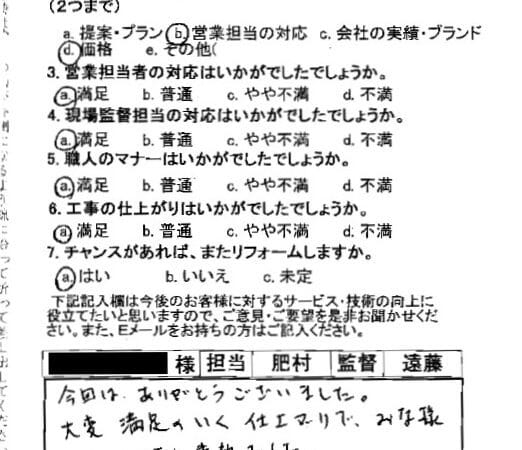 (2つまで)
a. 提案・プラン b. 営業担当の対応 c. 会社の実績・ブランド
d. 価格 e. その他(
3. 営業担当者の対応はいかがでしたでしょうか。
a. 満足 b. 普通 c. やや不満 d. 不満
4. 現場監督担当の対応はいかがでしたでしょうか。
a. 満足 b. 普通 c. やや不満 d. 不満
5. 職人のマナーはいかがでたでしょうか。
a. 満足 b. 普通 c. やや不満 d. 不満
6. 工事の仕上がりはいかがでしたでしょうか。
a. 満足 b. 普通 c. やや不満 d. 不満
7. チャンスがあれば、またリフォームしますか。
a. はい b. いいえ c. 未定
下記記入欄は今後のお客様に対するサービス・技術の向上に
役立てたいと思いますので、ご意見・ご要望を是非お聞かせくだ
さい。また、Eメールをお持ちの方はご記入ください。
様 担当 肥村 監督 遠藤
今回は ありがとうございました。
大変 満足のいく 仕上がりで、みな様